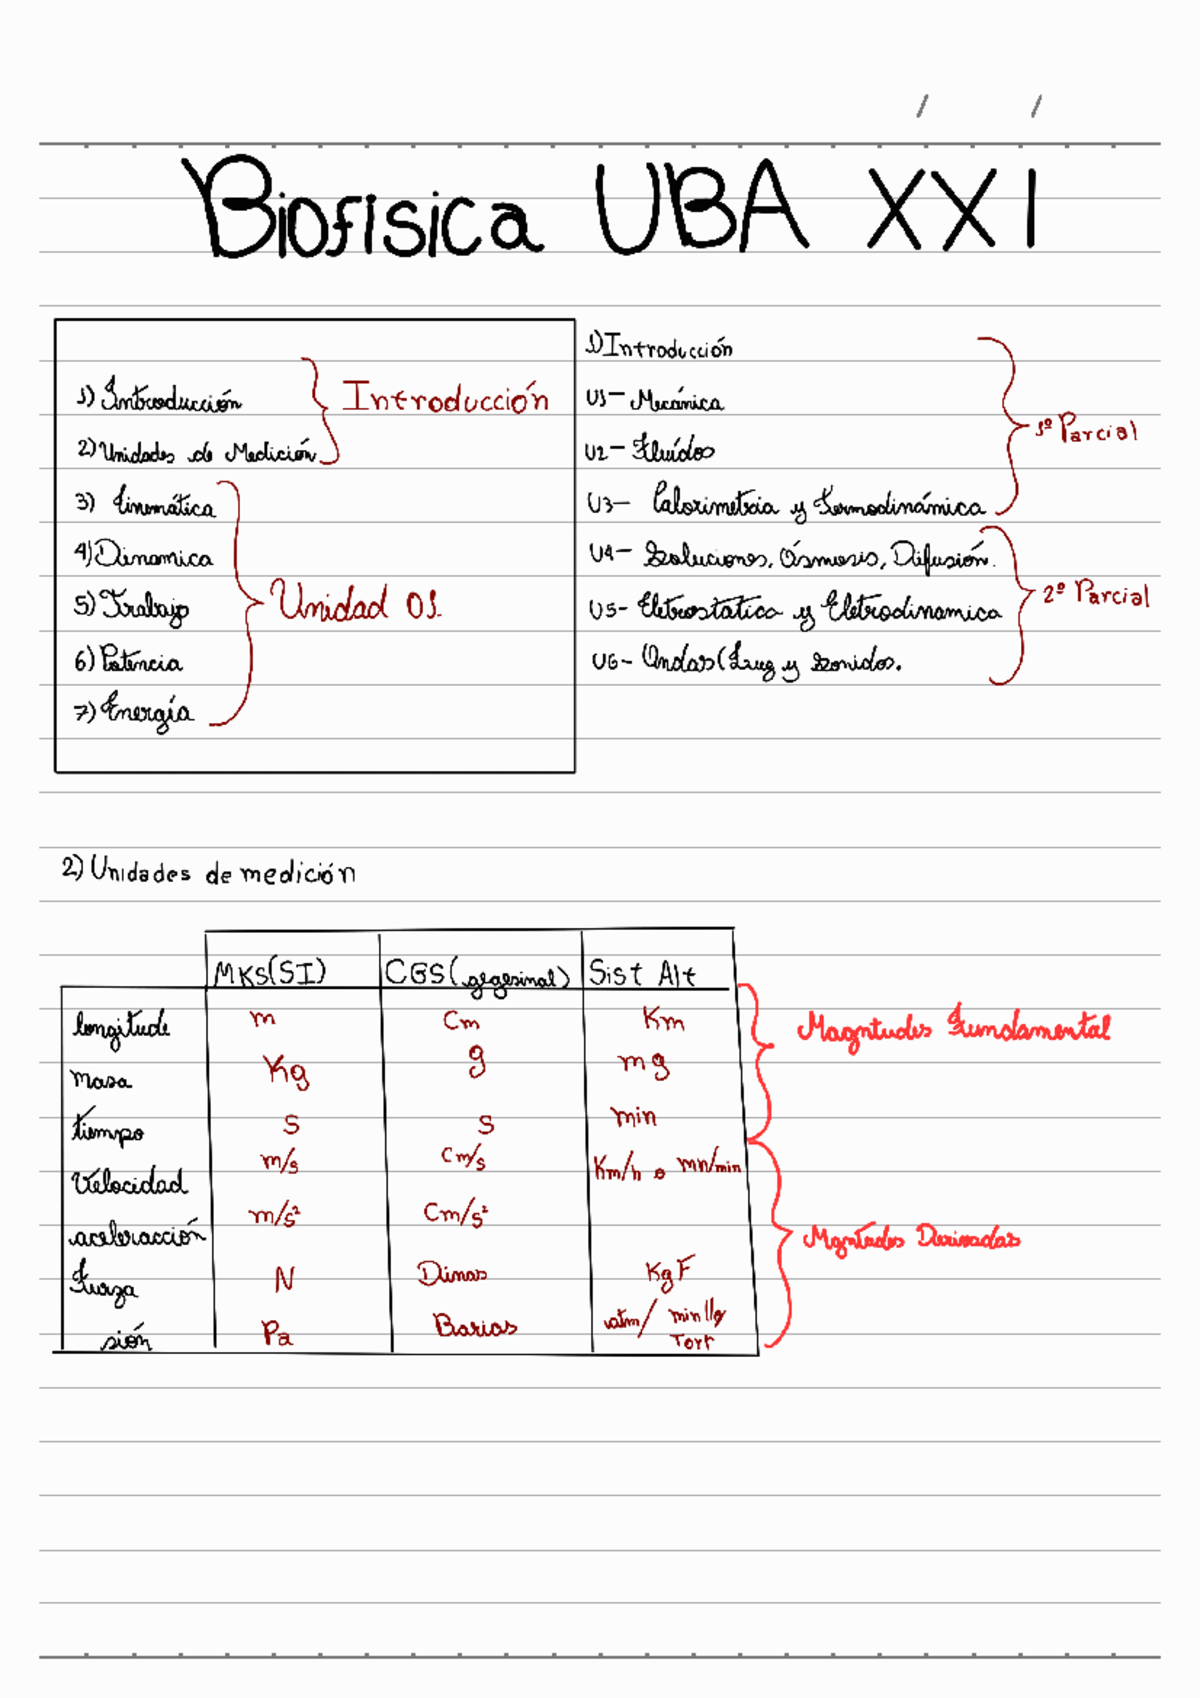 / /
Biofisica UBA XXI
1) Introducción
2) Unidades de Medición
Introducción
3) Cinemática
4) Dinamica
5) Trabajo
6) Potencia
7) Energía
Unidad 01.
1) Introducción
U1- Mecánica
U2- Fluídos
U3- Calorimetria y Termodinámica
1º Parcial
U4- Soluciones, Ósmosis, Difusión.
U5- Eletrostatica y Eletrodinamica
U6- Ondas (Luz y Sonidos.
2º Parcial
2) Unidades de medición
MKS(SI) CGS( ) Sist Alt
longitude m Cm Km
masa Kg g mg
tiempo s s min
Velocidad m/s Cm/s Km/h o mn/min
aceleracción m/s² Cm/s²
Fuerza N Dinas KgF
sión Pa Barias atm/ mmHg
Torr
Magntudes Fundamental
Mgntudes Derivadas